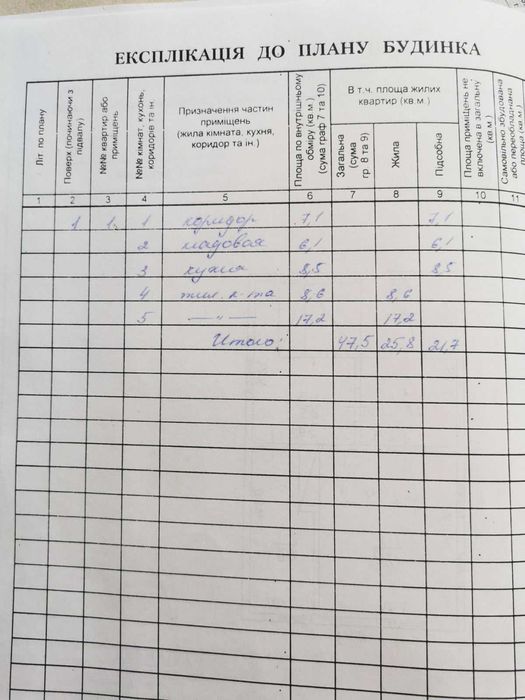 ЕКСПЛІКАЦІЯ ДО ПЛАНУ БУДИНКА
Літ. по плану
Поверх (починаючи з підвалу)
№№ квартир або приміщень
№№ кімнат, кухонь, коридорів та ін.
Призначення частин приміщень (жила кімната, кухня, коридор та ін.)
Площа по внутрішньому обміру (кв.м.) (сума граф 7 та 10)
В т.ч. площа жилих квартир (кв.м.)
Загальна (сума гр. 8 та 9)
Жила
Підсобна
Площа приміщень не включена в загальну (кв.м.)
Самовільно збудована або переобладнана площа (кв.м.)
1 2 3 4 5 6 7 8 9 10 11
1 1 1 коридор 7,1 7,1
2 кладовая 6,1 6,1
3 кухня 8,5 8,5
4 жил. к-та 8,6 8,6
5 —"— 17,2 17,2
Итого: 47,5 25,8 21,7